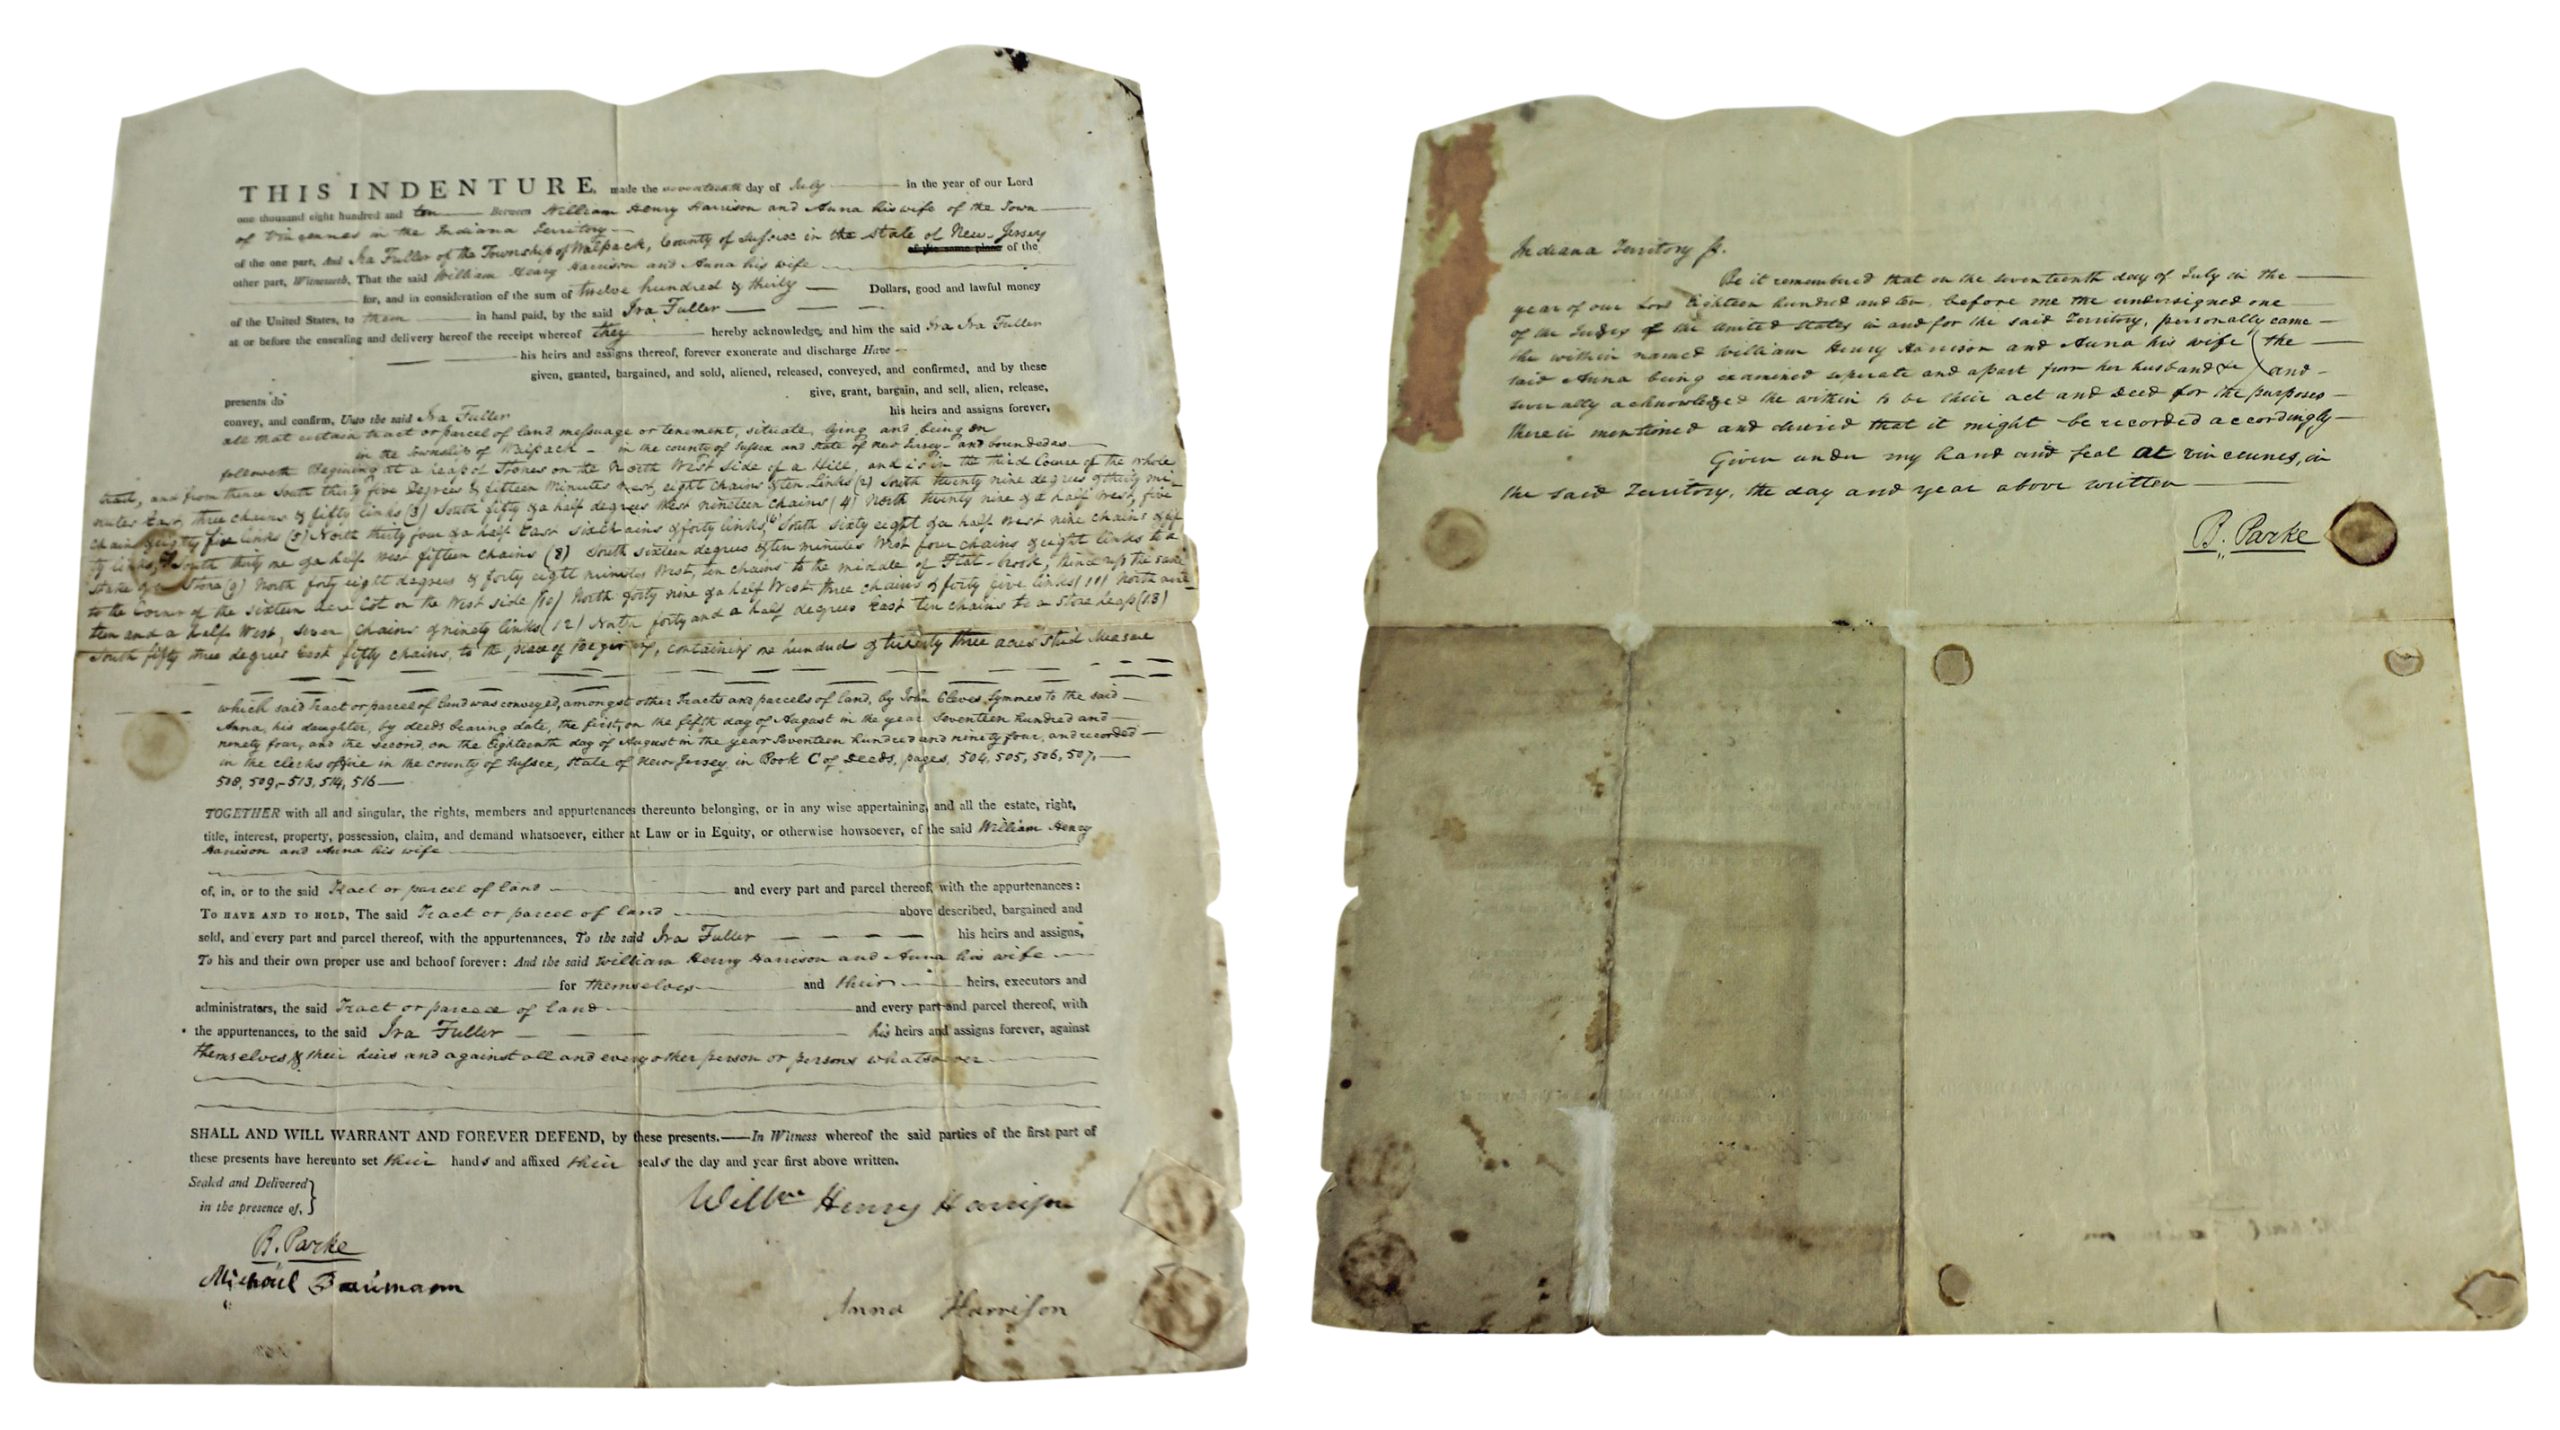 THIS INDENTURE, made the seventeenth day of July in the year of our Lord
one thousand eight hundred and ten Between William Henry Harrison and Anna his wife of the Town
of Vincennes in the Indiana Territory
of the one part, And Ira Fuller of the Township of Walpack, County of Sussex in the State of New-Jersey
of the same place of the
other part, Witnesseth, That the said William Henry Harrison and Anna his wife
for, and in consideration of the sum of twelve hundred & thirty Dollars, good and lawful money
of the United States, to them in hand paid, by the said Ira Fuller
at or before the ensealing and delivery hereof the receipt whereof they hereby acknowledge, and him the said Ira Ira Fuller
his heirs and assigns thereof, forever exonerate and discharge Have
given, granted, bargained, and sold, aliened, released, conveyed, and confirmed, and by these
presents do give, grant, bargain, and sell, alien, release,
convey, and confirm, Unto the said Ira Fuller his heirs and assigns forever,
all that certain tract or parcel of land messuage or tenement, situate, lying and being in
in the Township of Walpack in the county of Sussex and State of New Jersey and bounded as
followeth Begining at a heap of Stones on the North West side of a Hill, and is in the third Course of the whole
tract, and from thence South thirty five Degrees & fifteen Minutes West, eight chains & ten Links (2) South twenty nine degrees & thirty mi-
nutes East, three chains & fifty links (3) South fifty & a half degrees West nineteen chains (4) North twenty nine & a half West, five
chains & eighty five links (5) North thirty four & a half East six chains & forty links, (6) South sixty eight & a half West nine chains & fif
ty links, (7) South thirty one & a half West fifteen chains (8) South sixteen degrees & ten minutes West four chains & eight links to a
Stake & Stone (9) North forty eight degrees & forty eight minutes West, ten chains to the middle of Flat-brook, thence up the same
to the Corner of the sixteen acre Lot on the West side (10) North forty nine & a half West three chains & forty five links (11) North nine
teen and a half West, seven chains & ninety links (12) North forty and a half degrees East ten chains to a stone heap (13)
South fifty three degrees East fifty chains, to the place of Begining, containing one hundred & twenty three acres Strict Measure
which said Tract or parcel of land was conveyed, amongst other Tracts and parcels of land, by John Cleves Symmes to the said
Anna, his daughter, by deeds bearing date, the first, on the fifth day of August in the year Seventeen hundred and
ninety four, and the second, on the Eighteenth day of August in the year Seventeen hundred and ninety four, and recorded
in the clerks office in the county of Sussex, State of New Jersey in Book C of Deeds, pages, 504, 505, 506, 507,
508, 509,-513, 514, 516
TOGETHER with all and singular, the rights, members and appurtenances thereunto belonging, or in any wise appertaining, and all the estate, right,
title, interest, property, possession, claim, and demand whatsoever, either at Law or in Equity, or otherwise howsoever, of the said William Henry
Harrison and Anna his wife
of, in, or to the said Tract or parcel of land and every part and parcel thereof, with the appurtenances:
TO HAVE AND TO HOLD, The said Tract or parcel of land above described, bargained and
sold, and every part and parcel thereof, with the appurtenances, To the said Ira Fuller his heirs and assigns,
To his and their own proper use and behoof forever: And the said William Henry Harrison and Anna his wife
for themselves and their heirs, executors and
administrators, the said Tract or parcel of land and every part and parcel thereof, with
the appurtenances, to the said Ira Fuller his heirs and assigns forever, against
themselves & their heirs and against all and every other person or persons whatsoever
SHALL AND WILL WARRANT AND FOREVER DEFEND, by these presents.——In Witness whereof the said parties of the first part of
these presents have hereunto set their hands and affixed their seals the day and year first above written.
Sealed and Delivered
in the presence of,
Willm Henry Harrison
B. Parke
Michael Baumann
Anna Harrison
Indiana Territory ss.
Be it remembered that on the seventeenth day of July in the
year of our Lord Eighteen hundred and ten, before me the undersigned one
of the Judges of the United States in and for the said Territory, personally came
the within named William Henry Harrison and Anna his wife (the
said Anna being examined seperate and apart from her husband &c) and
severally acknowledged the within to be their act and deed for the purposes
therein mentioned and desired that it might be recorded accordingly
Given under my hand and seal at Vincennes, in
the said Territory, the day and year above written
B. Parke